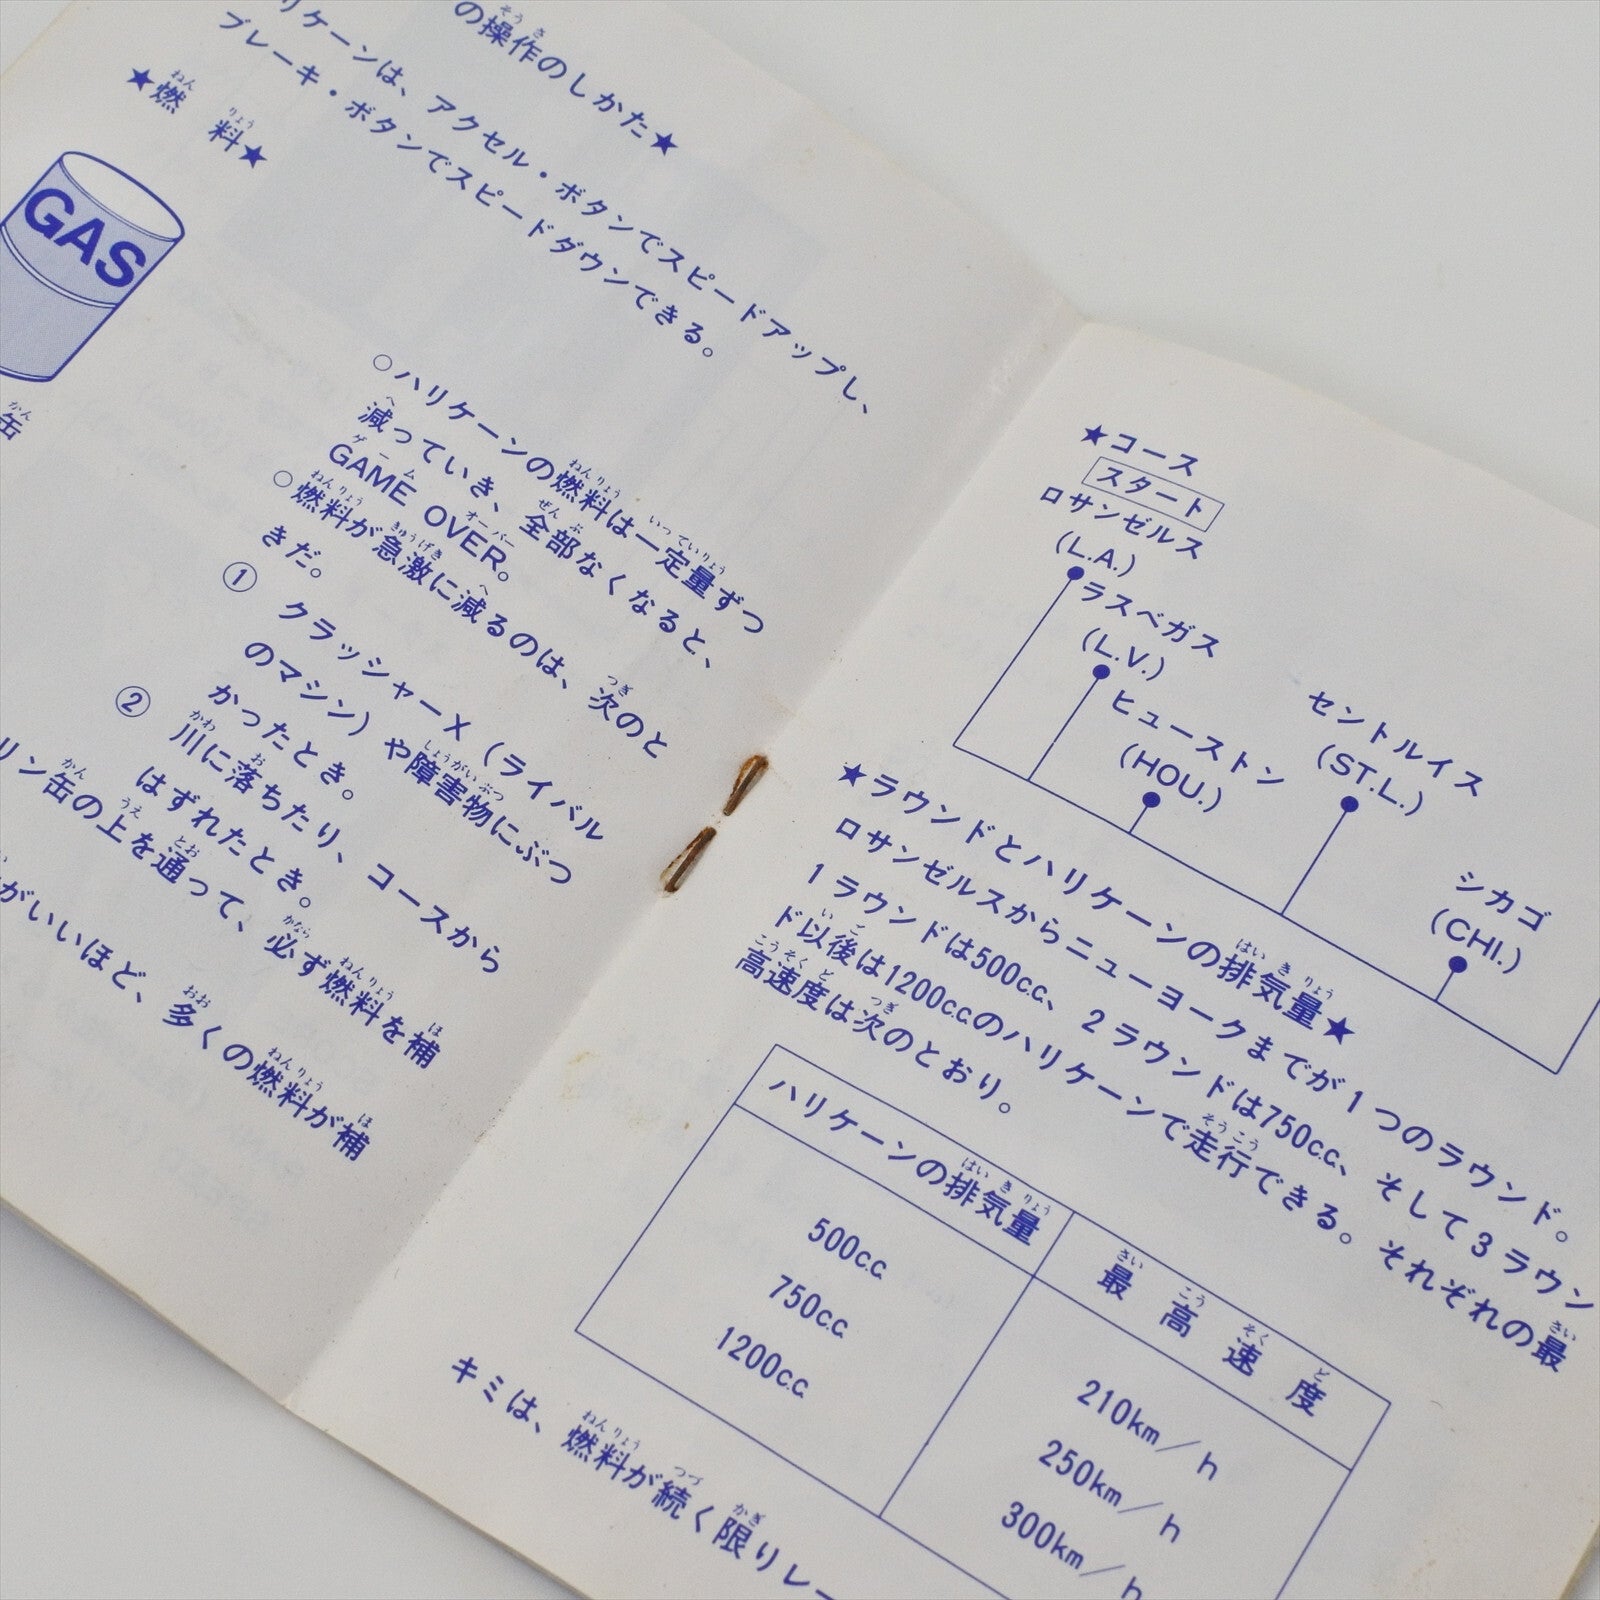 の操作のしかた★
リケーンは、アクセル・ボタンでスピードアップし、
ブレーキ・ボタンでスピードダウンできる。
★燃料★
GAS
缶
○ハリケーンの燃料は一定量ずつ
減っていき、全部なくなると、
GAME OVER。
○燃料が急激に減るのは、次のと
きだ。
① クラッシャーX（ライバル
のマシン）や障害物にぶつ
かったとき。
② 川に落ちたり、コースから
はずれたとき。
リン缶の上を通って、必ず燃料を補
がいいほど、多くの燃料が補
★コース
スタート
ロサンゼルス
(L.A.)
ラスベガス
(L.V.)
ヒューストン
(HOU.)
セントルイス
(ST.L.)
シカゴ
(CHI.)
★ラウンドとハリケーンの排気量★
ロサンゼルスからニューヨークまでが1つのラウンド。
1ラウンドは500c.c.、2ラウンドは750c.c.、そして3ラウン
ド以後は1200c.c.のハリケーンで走行できる。それぞれの最
高速度は次のとおり。
ハリケーンの排気量 最高速度
500c.c. 210km/h
750c.c. 250km/h
1200c.c. 300km/h
キミは、燃料が続く限りレー